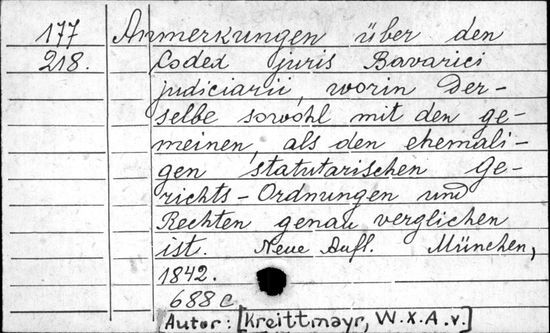 177 Anmerkungen über den
218. Codex juris Bavarici
judiciarii, worin der-
selbe sowohl mit den ge-
meinen, als den ehemali-
gen statutarischen Ge-
richts-Ordnungen und
Rechten genau verglichen
ist. Neue Aufl. München,
1842.
688 c
Autor: [Kreittmayr, W. X. A. v.]